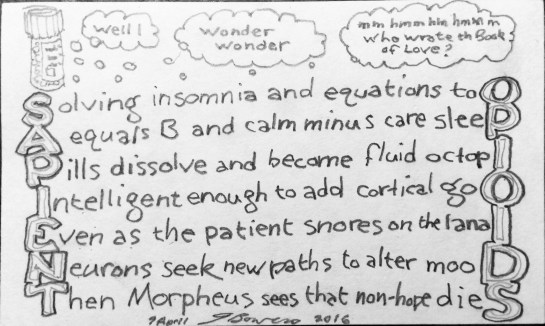 well I
wonder
wonder
mm hmm hm hmm m
who wrote the Book
of Love?
Solving insomnia and equations to O
A equals B and calm minus care sleeP
Pills dissolve and become fluid octopI
Intelligent enough to add cortical goO
Even as the patient snores on the lanaI
Neurons seek new paths to alter mooD
Then Morpheus sees that non-hope dieS
9 April 2016